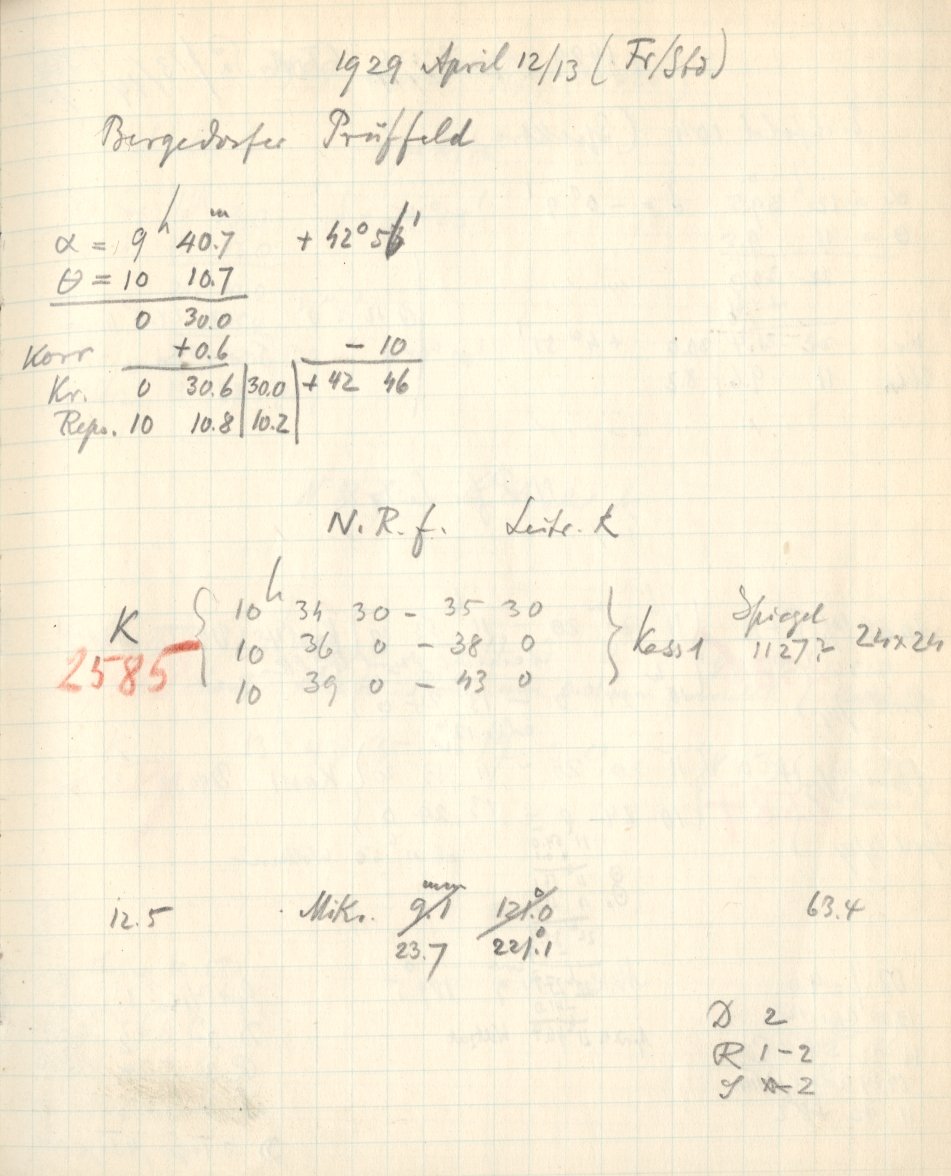 1929 April 12/13 (Fr/Sbd)
Bergedorfer Prüffeld
α = 9h 40.7m + 42° 56'
θ = 10 10.7
0 30.0
Korr +0.6 - 10
Kr. 0 30.6 30.0 + 42 46
Reps. 10 10.8 10.2
N.R.f. Leitr. k
10h 34 30 - 35 30
K 10 36 0 - 38 0 Kass 1 Spiegel 1127? 24x24
2585 10 39 0 - 43 0
12.5 Mikr. 9.1mm 121.0° 63.4
23.7 221.1°
D 2
R 1-2
S 2